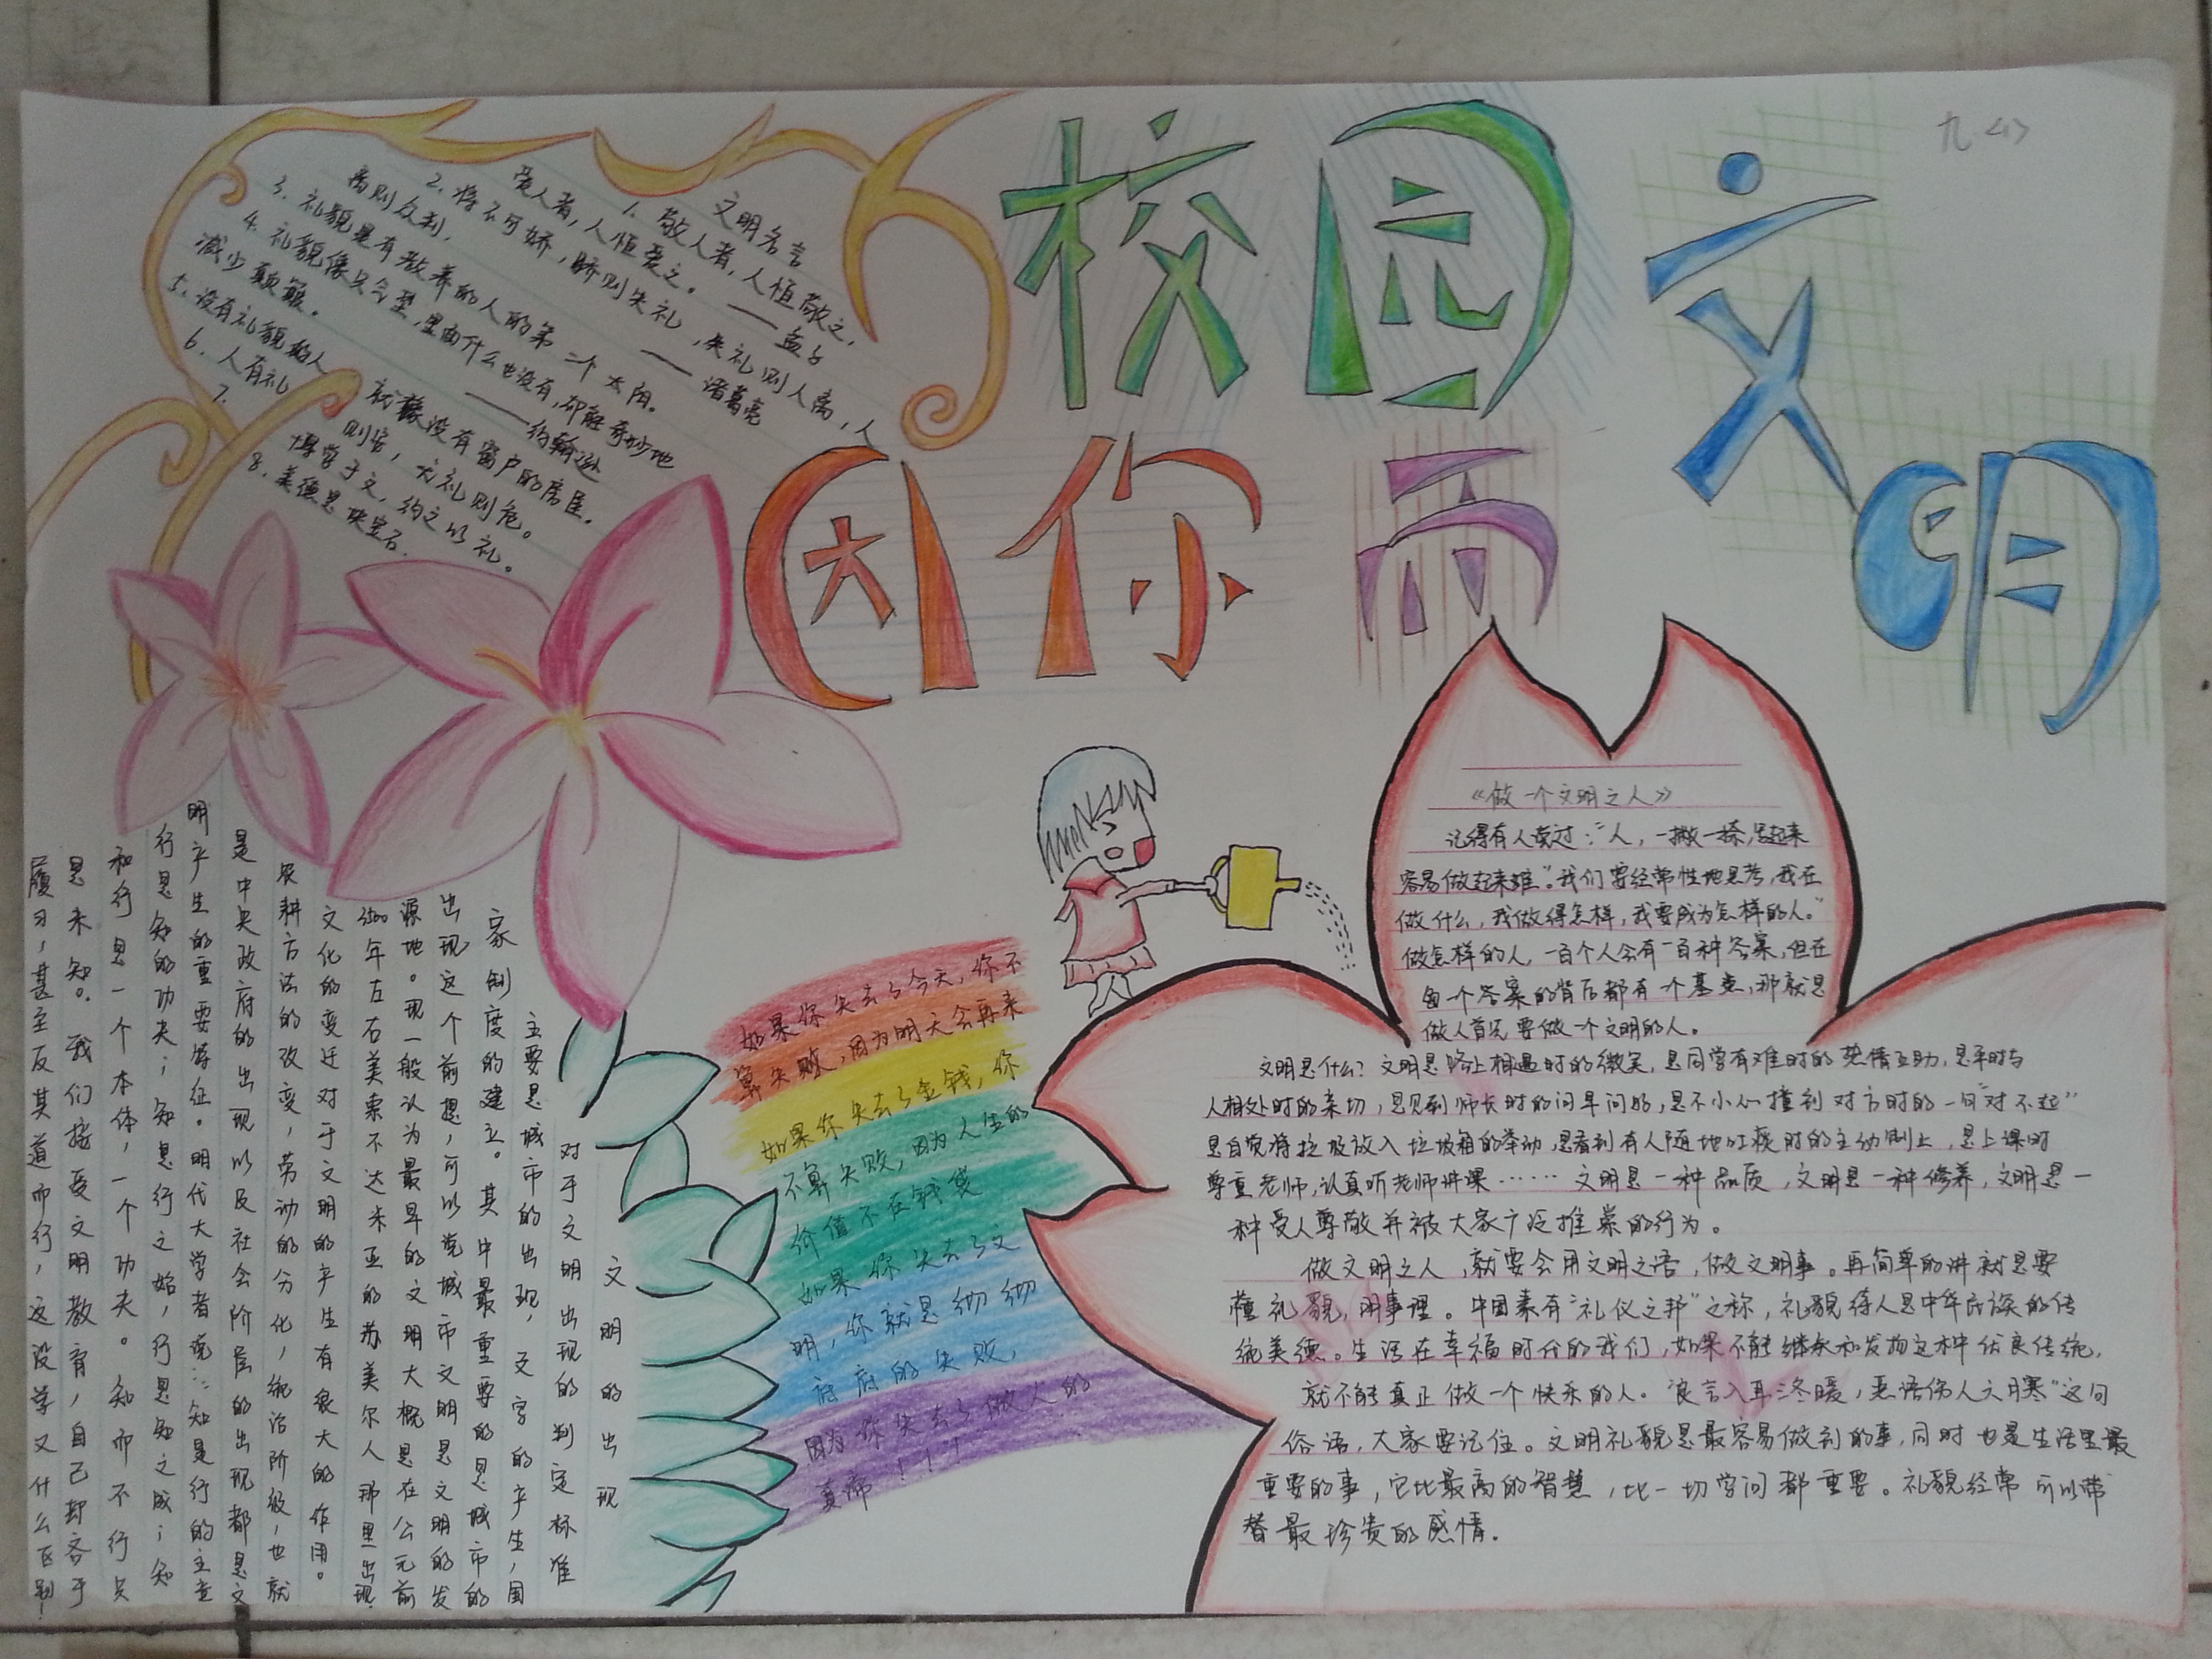 九<1>
校园文明
因你而
文明名言
1. 敬人者，人恒敬之，
爱人者，人恒爱之。——孟子
2. 将不可娇，骄则失礼，失礼则人离，人
离则众判.——诸葛亮
3. 礼貌是有教养的人的第二个太阳。
4. 礼貌像只气垫，里面什么也没有，却能奇妙地
减少颠簸。——约翰逊
5. 没有礼貌的人就像没有窗户的房屋。
6. 人有礼则安，无礼则危。
7. 博学于文，约之以礼。
8. 美德是块宝石.
《做一个文明之人》
记得有人卖过：“人，一撇一捺，写起来
容易做起来难”。我们要经常性地思考，我在
做什么，我做得怎样，我要成为怎样的人。”
做怎样的人，一百个人会有一百种答案，但在
每一个答案的背后都有一个基奠，那就是
做人首先要做一个文明的人。
文明是什么？文明是路上相遇时的微笑，是同学有难时的热情互助，是平时与
人相处时的亲切，是见到师长时的问早问好，是不小心撞到对方时的一句“对不起”
是自觉将垃圾放入垃圾箱的举动，是看到有人随地吐痰时的主动制止，是上课时
尊重老师，认真听老师讲课……文明是一种品质，文明是一种修养，文明是一
种受人尊敬并被大家广泛推崇的行为。
做文明之人，就要会用文明之语，做文明事。再简单的讲就是要
懂礼貌，明事理。中国素有“礼仪之邦”之称，礼貌待人是中华民族的传
统美德。生活在幸福时代的我们，如果不能继承和发扬这种优良传统，
就不能真正做一个快乐的人。“良言入耳三冬暖，恶语伤人六月寒”这句
俗语，大家要记住。文明礼貌是最容易做到的事，同时也是生活里最
重要的事，它比最高的智慧，比一切学问都重要。礼貌经常可以带
替最珍贵的感情.
如果你失去了今天，你不
算失败，因为明天会再来
如果你失去了金钱，你
不算失败，因为人生的
价值不在钱袋
如果你失去了文
明，你就是彻彻
底底的失败，
因为你失去了做人的
真谛！！！
文明的出现
对于文明出现的判定标准
主要是城市的出现，文字的产生，国
家制度的建立。其中最重要的是城市的
出现这个前想，可以说城市文明是文明的发
源地。现一般认为最早的文明大概是在公元前
年左右美索不达米亚的苏美尔人那里出现
文化的变迁对于文明的产生有很大的作用。
农耕方法的改变，劳动的分化，统治阶级，也就
是中央政府的出现以及社会阶层的出现都是文
明产生的重要特征。明代大学者说：知是行的主意
行是知的功夫；知是行之始，行是知之成；知
和行是一个本体，一个功夫。知而不行只
是未知。我们接受文明教育，自己却吝于
履习，甚至反其道而行，这没学又什么区别！